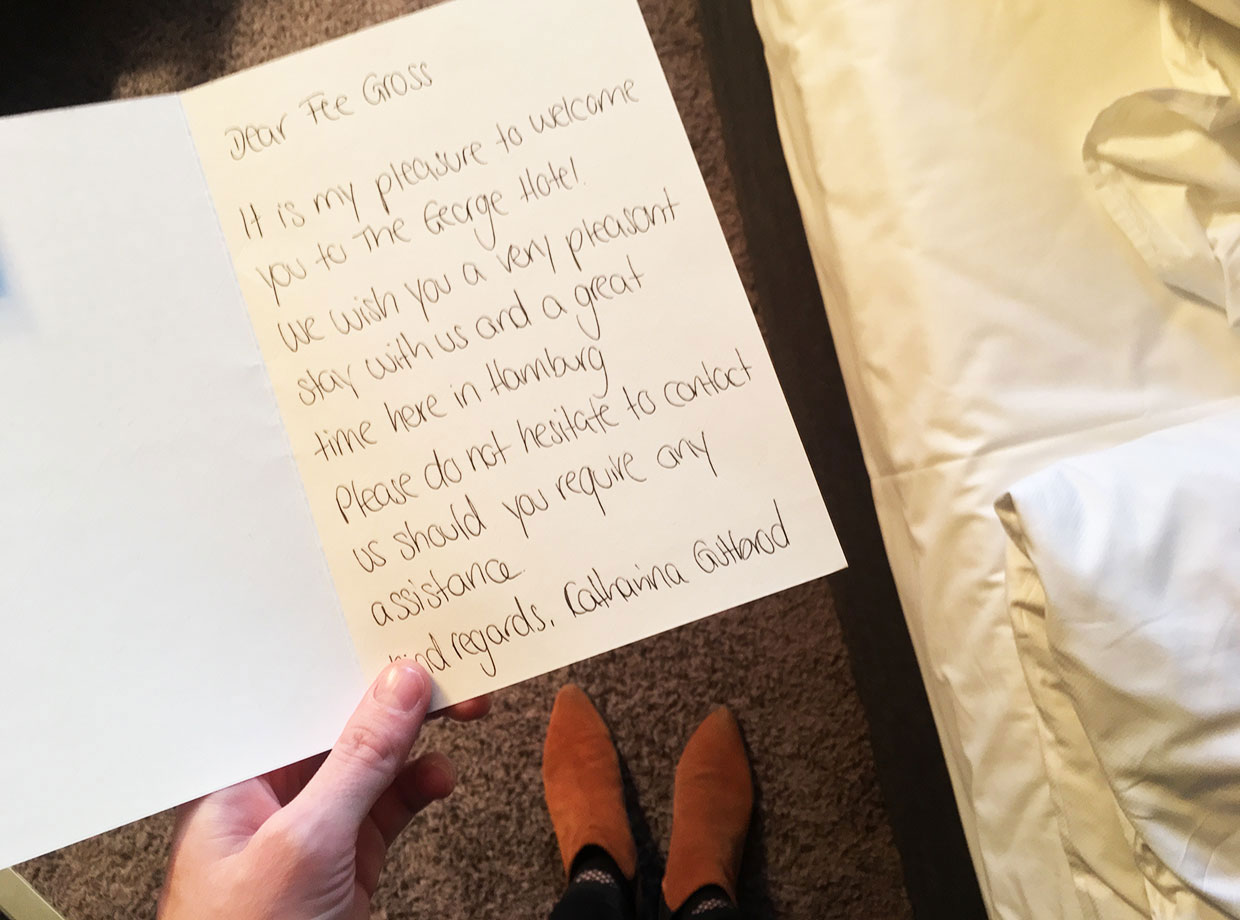 Dear Fee Gross
It is my pleasure to welcome
you to The George Hotel.
We wish you a very pleasant
stay with us and a great
time here in Hamburg
Please do not hesitate to contact
us should you require any
assistance.
kind regards, Catharina Gutbrod